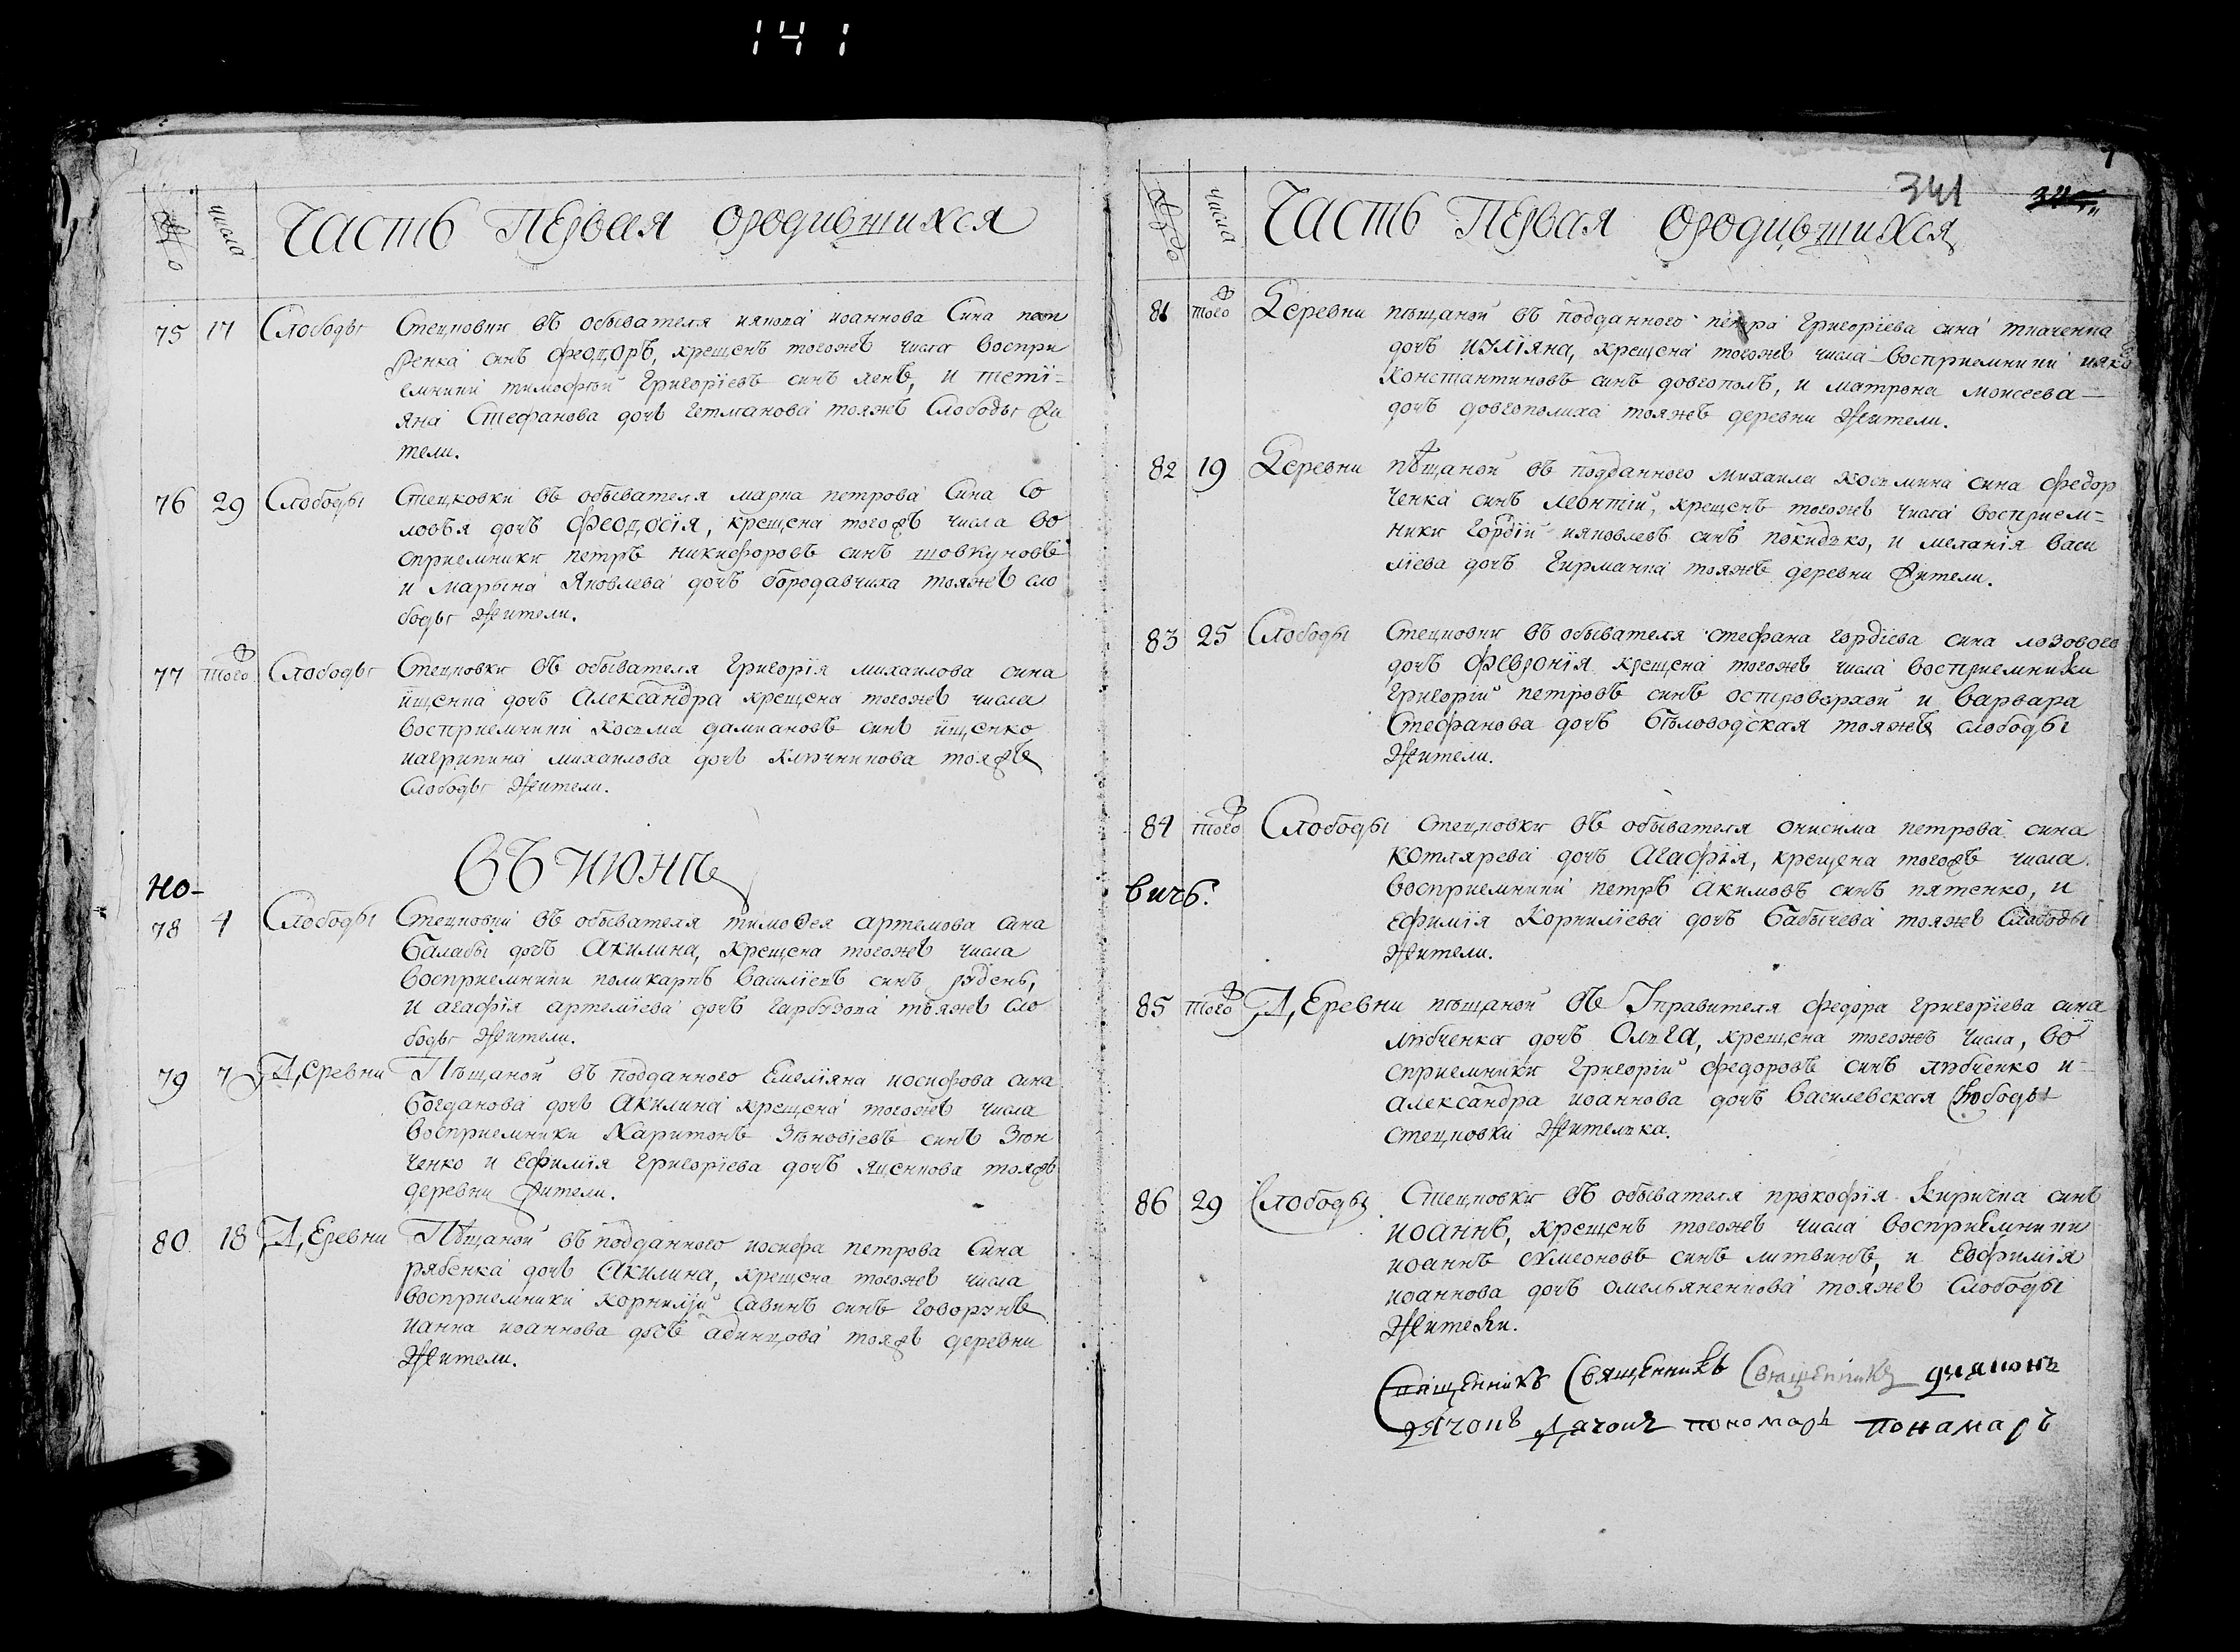 141
числа
Часть Первая ородившихся
75 17 Слободы Стецковки въ обывателя иякова иоаннова Сина
ренка синъ феодоръ, крещенъ тогожъ числа воспри
емники тимофѣй Григорїевъ синъ ленъ, и тетї=
яна Стефанова дочъ гетманова тояжъ Слободы жи
тели.
76 29 Слободы Стецковки въ обывателя марка петрова Сина Со
ловья дочъ феодосїя, крещена тогожъ числа во
сприемники петръ никифоровъ синъ шовкуновъ
и марына Яковлева дочъ бородавчиха тояжъ сло
боды жители.
77 того Слободы Стецковки въ обывателя Григорїя михаилова сина
їщенка дочъ Александра крещена тогожъ числа
восприемники Косьма дамиановъ синъ їщенко
иагрипина михаилова дочъ Ключникова тояжъ
Слободы жители.
Въ июнѣ
но-
78 4 Слободы Стецковки въ обывателя тимоѳея артемова сина
Балабы дочъ Акилина, крещена тогожъ числа
восприемники поликарпъ василїевъ синъ рудень,
и агафїя артемїева дочъ гарбузова тояжъ сло
боды жители.
79 7 Деревни Пѣщаной въ подданного Емелїяна иосифова сина
Богданова дочъ Акилина крещена тогожъ числа
восприемники Харитонъ Зѣновїевъ синъ Зѣн
ченко и Ефимїя григорїева дочъ ященкова тояжъ
деревни жители.
80 18 Деревни Пѣщаной въ подданного иосифа петрова Сина
рябенка дочъ Акилина, крещена тогожъ числа
восприемники корнилїй Савинъ синъ говорунъ
ианна иоаннова дочъ адинцова тояжъ деревни
жители.
341
числа
Часть Первая ородившихся
81 того Деревни пѣщаной въ подданного петра Григорїева сина ткаченка
дочъ иулїяна, крещена тогожъ числа восприемники ияко
Константиновъ синъ довгополъ, и матрона моисеева
дочъ довгополиха тояжъ деревни жители.
82 19 Деревни пѣщаной въ подданного михаила косьмина сина федор
ченка синъ леонтїй, крещенъ тогожъ числа восприем=
ники гордїй ияковлевъ синъ покидько, и меланїя васи
лїева дочъ Гирманка тояжъ деревни жители.
83 25 Слободы Стецковки въ обывателя стефана гордїева сина лозового
дочъ февронїя крещена тогожъ числа восприемники
григорїй петровъ синъ островерхой и варвара
Стефанова дочъ Бѣловодская тояжъ слободы
жители.
84 того Слободы стецковки въ обывателя онисима петрова сина
котлярева дочъ Агафїя, крещена тогожъ числа
восприемники петръ Акимовъ синъ пятенко, и
вичь.
ефимїя Корнилїева дочъ бабычева тояжъ Слободы
жители.
85 того Деревни пѣщаной въ Управителя федора григорїева сина
любченка дочъ Олъга, крещена тогожъ числа, во
сприемники Григорїй федоровъ синъ любченко и=
александра иоаннова дочъ василевская Слободы
стецковки жителька.
86 29 Слободы Стецковки въ обывателя прокофїя Киричка синъ
иоаннъ, крещенъ тогожъ числа восприемники
иоаннъ симеоновъ синъ литвинъ, и Евфимїя
иоаннова дочъ омельяненкова тояжъ Слободы
жители.
Священникъ Священникъ Священникъ диаконъ
дячокъ Дячокъ пономарь понамарь